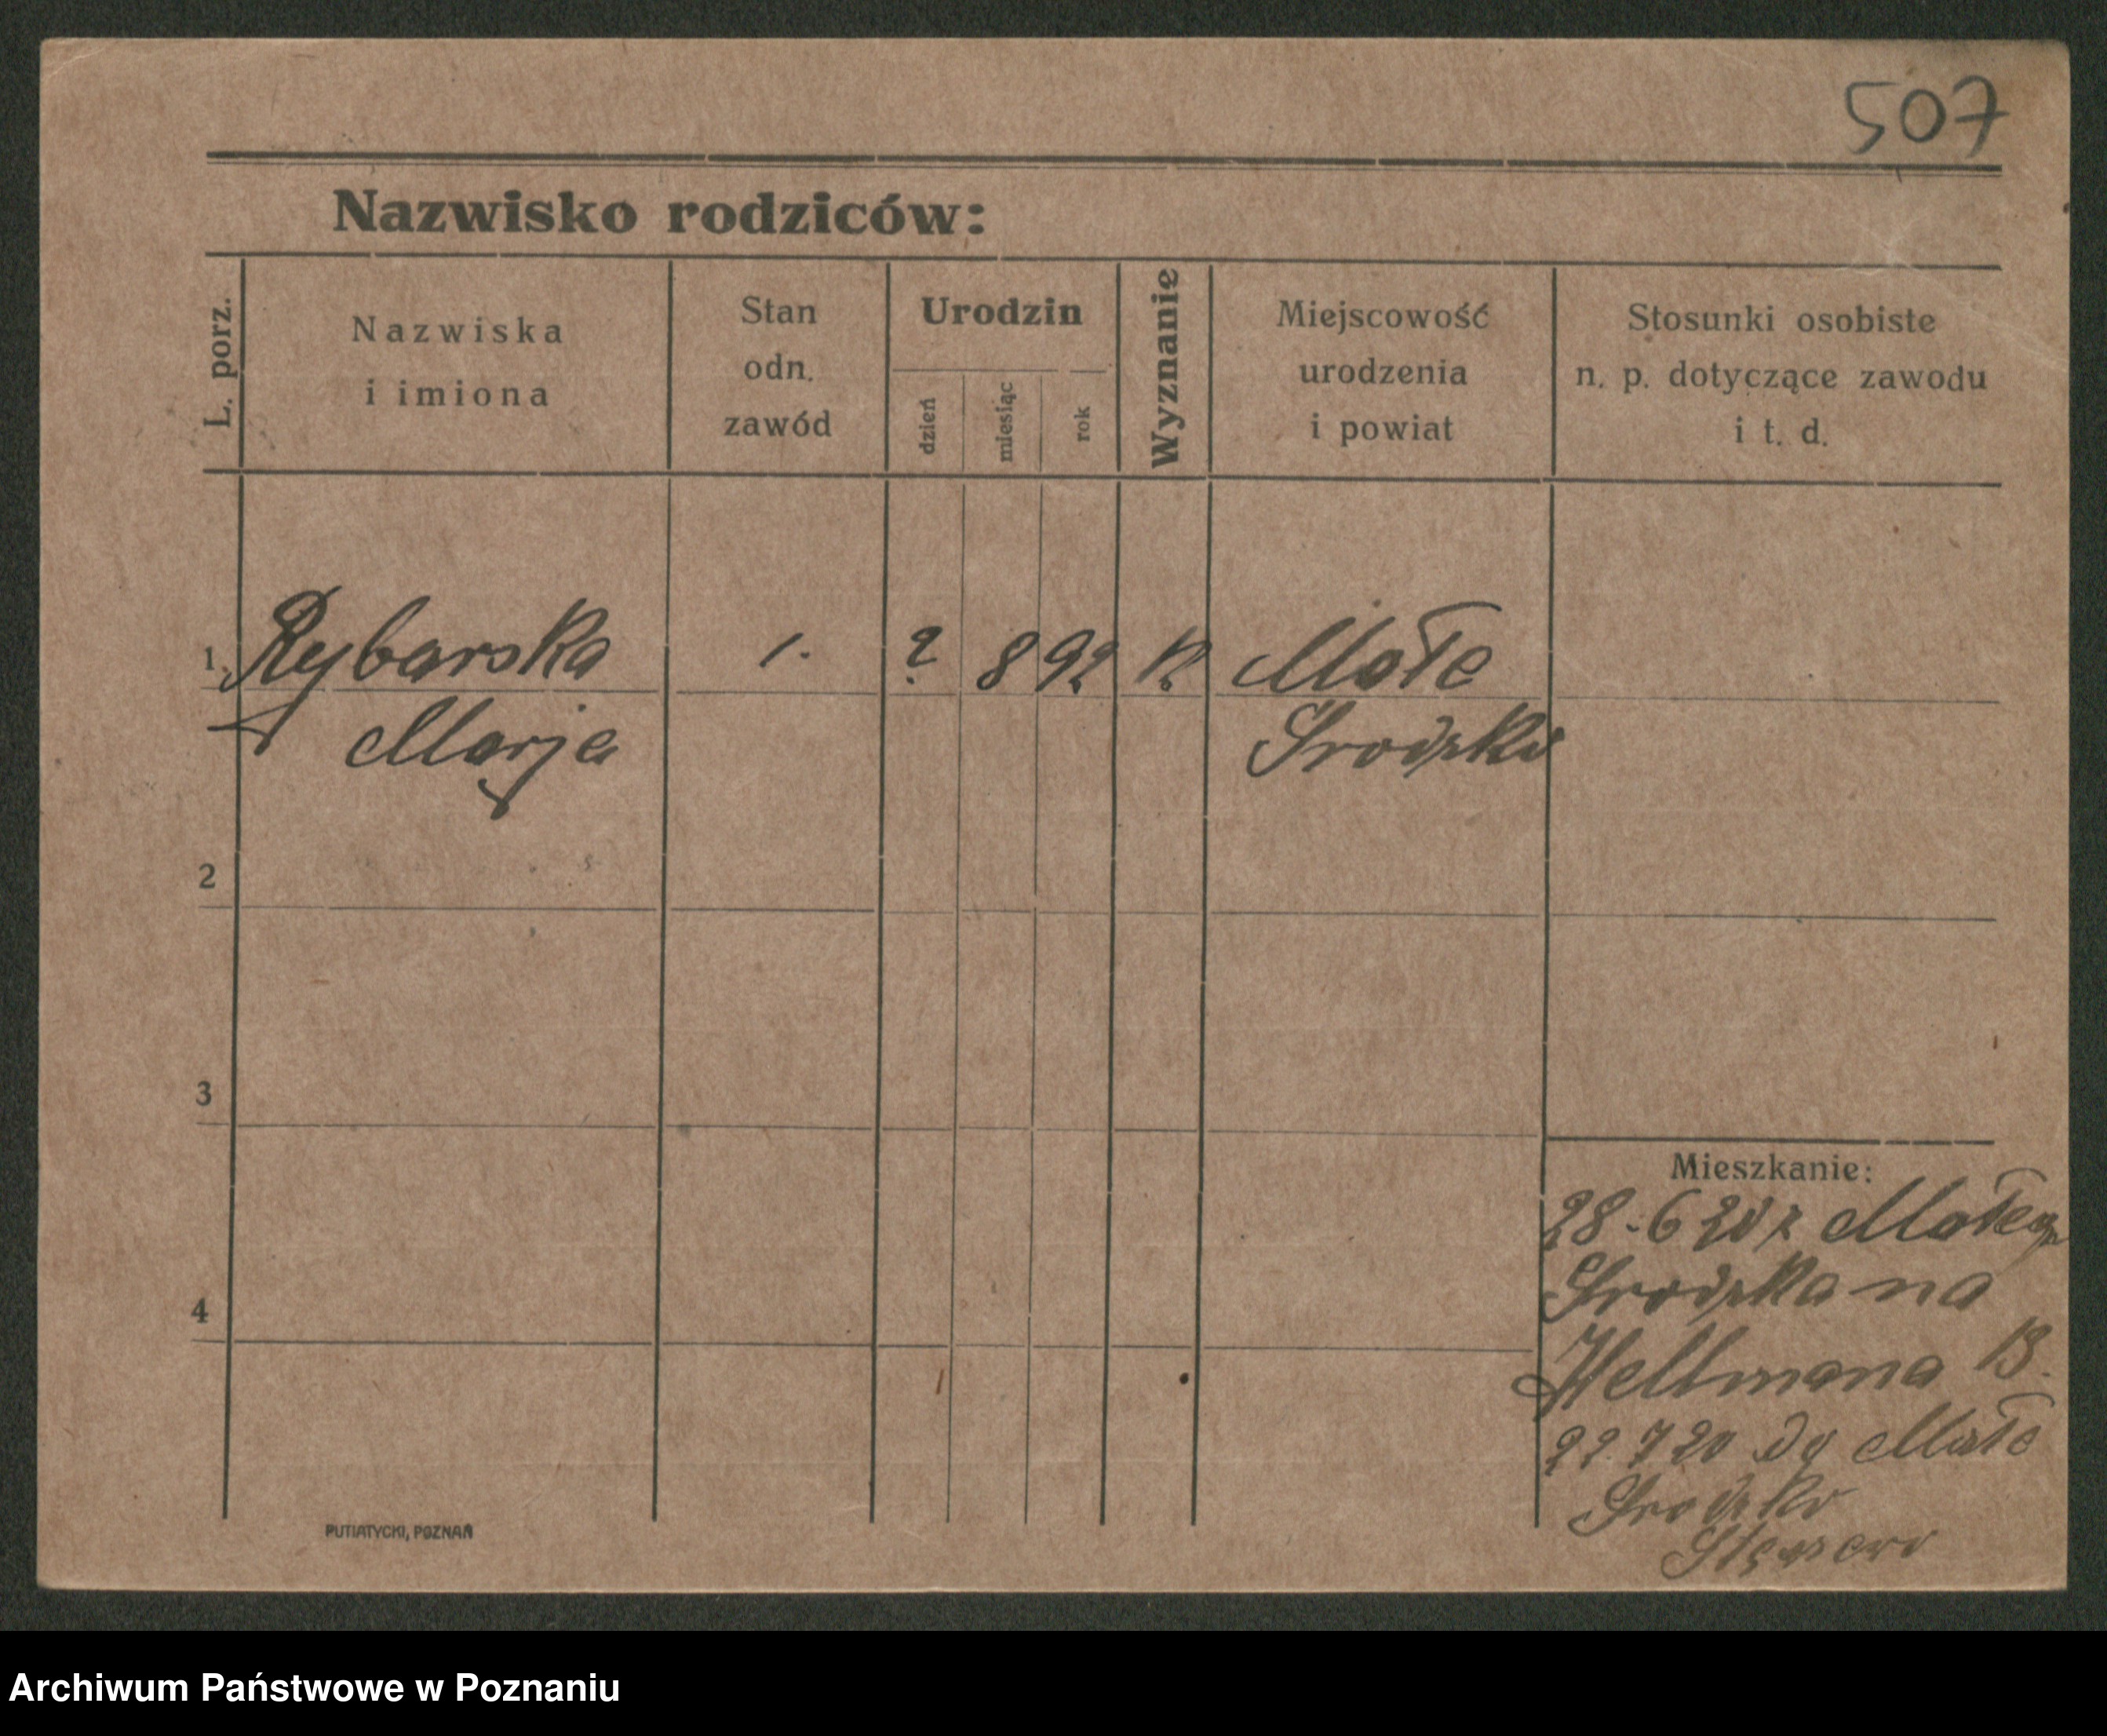 507
Nazwisko rodziców:
L. porz.
Nazwiska
i imiona
Stan
odn.
zawód
Urodzin
dzień
miesiąc
rok
Wyznanie
Miejscowość
urodzenia
i powiat
Stosunki osobiste
n. p. dotyczące zawodu
i t. d.
1. Rybarska 1. ? 8 92 k Małe
Marja Srodzko
2
3
4
Mieszkanie:
28.6 20 z
Srodzka na
Hellmana 13.
22.7 20 do Małe
Srodzko
PUTIATYCKI, POZNAŃ
Archiwum Państwowe w Poznaniu